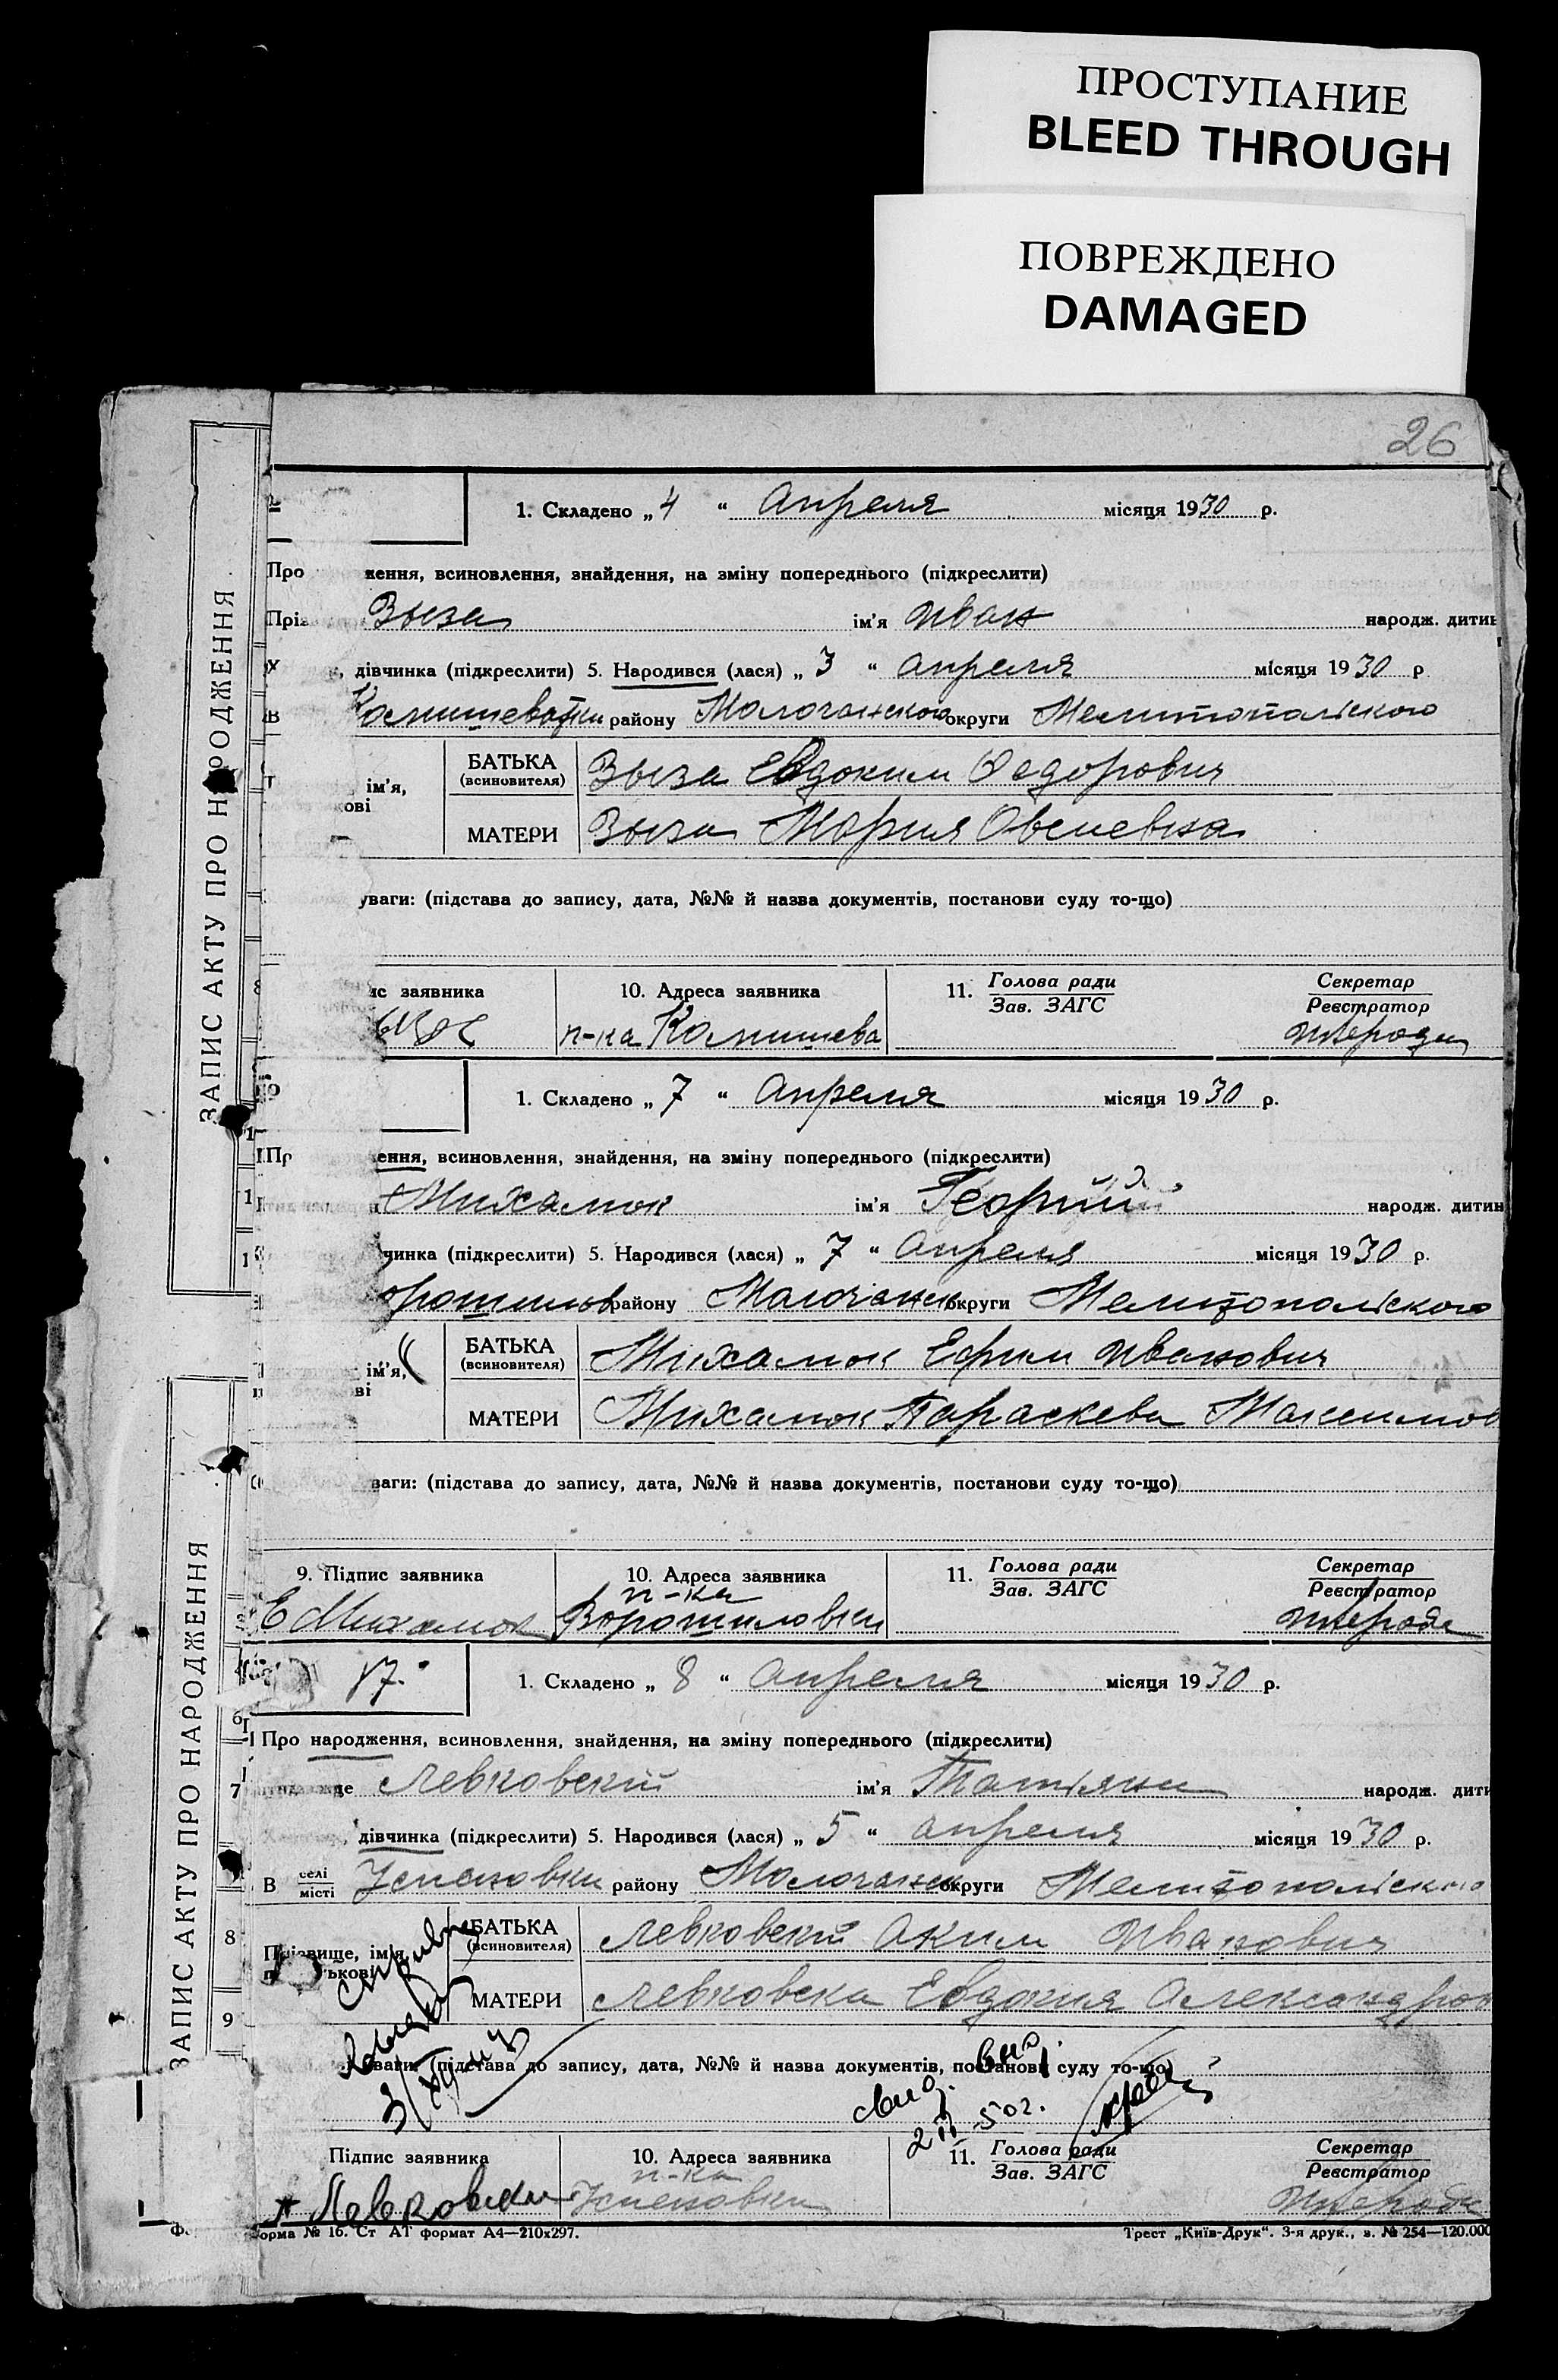 ПРОСТУПАНИЕ
BLEED THROUGH
ПОВРЕЖДЕНО
DAMAGED
26
ЗАПИС АКТУ ПРО НАРОДЖЕННЯ
1. Складено „ 4 “ Апреля місяця 1930 р.
Про ження, всиновлення, знайдення, на зміну попереднього (підкреслити)
Пріз Зыза ім'я Иван народж. дитин
дівчинка (підкреслити) 5. Народився (лася) „ 3 “ апреля місяця 1930 р
В Камишеватки району Молочанского округи Мелитопольского
ім'я, БАТЬКА (всиновителя) Зыза Евдоким Федорович
кові
МАТЕРИ Зыза Мария Овсиевна
уваги: (підстава до запису, дата, №№ й назва документів, постанови суду то-що)
ис заявника 10. Адреса заявника 11. Голова ради Секретар
Зав. ЗАГС Реєстратор
п-ка Камишева
1. Складено „ 7 “ Апреля місяця 1930 р.
Пр ення, всиновлення, знайдення, на зміну попереднього (підкреслити)
Михалюк ім'я Георгий народж. дитин
чинка (підкреслити) 5. Народився (лася) „ 7 “ Апреля місяця 1930 р.
орошилов району Молочанск округи Мелитопольского
ім'я, БАТЬКА (всиновителя) Михалюк Ефим Иванович
ві
МАТЕРИ Михалюк Параскева Максимов
ваги: (підстава до запису, дата, №№ й назва документів, постанови суду то-що)
9. Підпис заявника 10. Адреса заявника 11. Голова ради Секретар
Зав. ЗАГС Реєстратор
п-ка
Е Михалюк Ворошиловки
ЗАПИС АКТУ ПРО НАРОДЖЕННЯ
17. 1. Складено „ 8 “ Апреля місяця 1930 р.
Про народження, всиновлення, знайдення, на зміну попереднього (підкреслити)
Левковский ім'я Татіяна народж. дити
дівчинка (підкреслити) 5. Народився (лася) „ 5 “ апреля місяця 1930 р.
В селі місті Успеновки району Молочанск округи Мелитопольского
Прізвище, ім'я БАТЬКА (всиновителя) Левковский Аким Иванович
ькові
МАТЕРИ Левковска Евдокия Александров
уваги: (підстава до запису, дата, №№ й назва документів, постанови суду то-що)
свид. выд.
2 II 50г.
Підпис заявника 10. Адреса заявника 11. Голова ради Секретар
Зав. ЗАГС Реєстратор
п-ка
Левковски Успеновки
орма № 16. Ст АТ формат А4—210х297. Трест „Київ-Друк“. 3-я друк., з. № 254—120.000